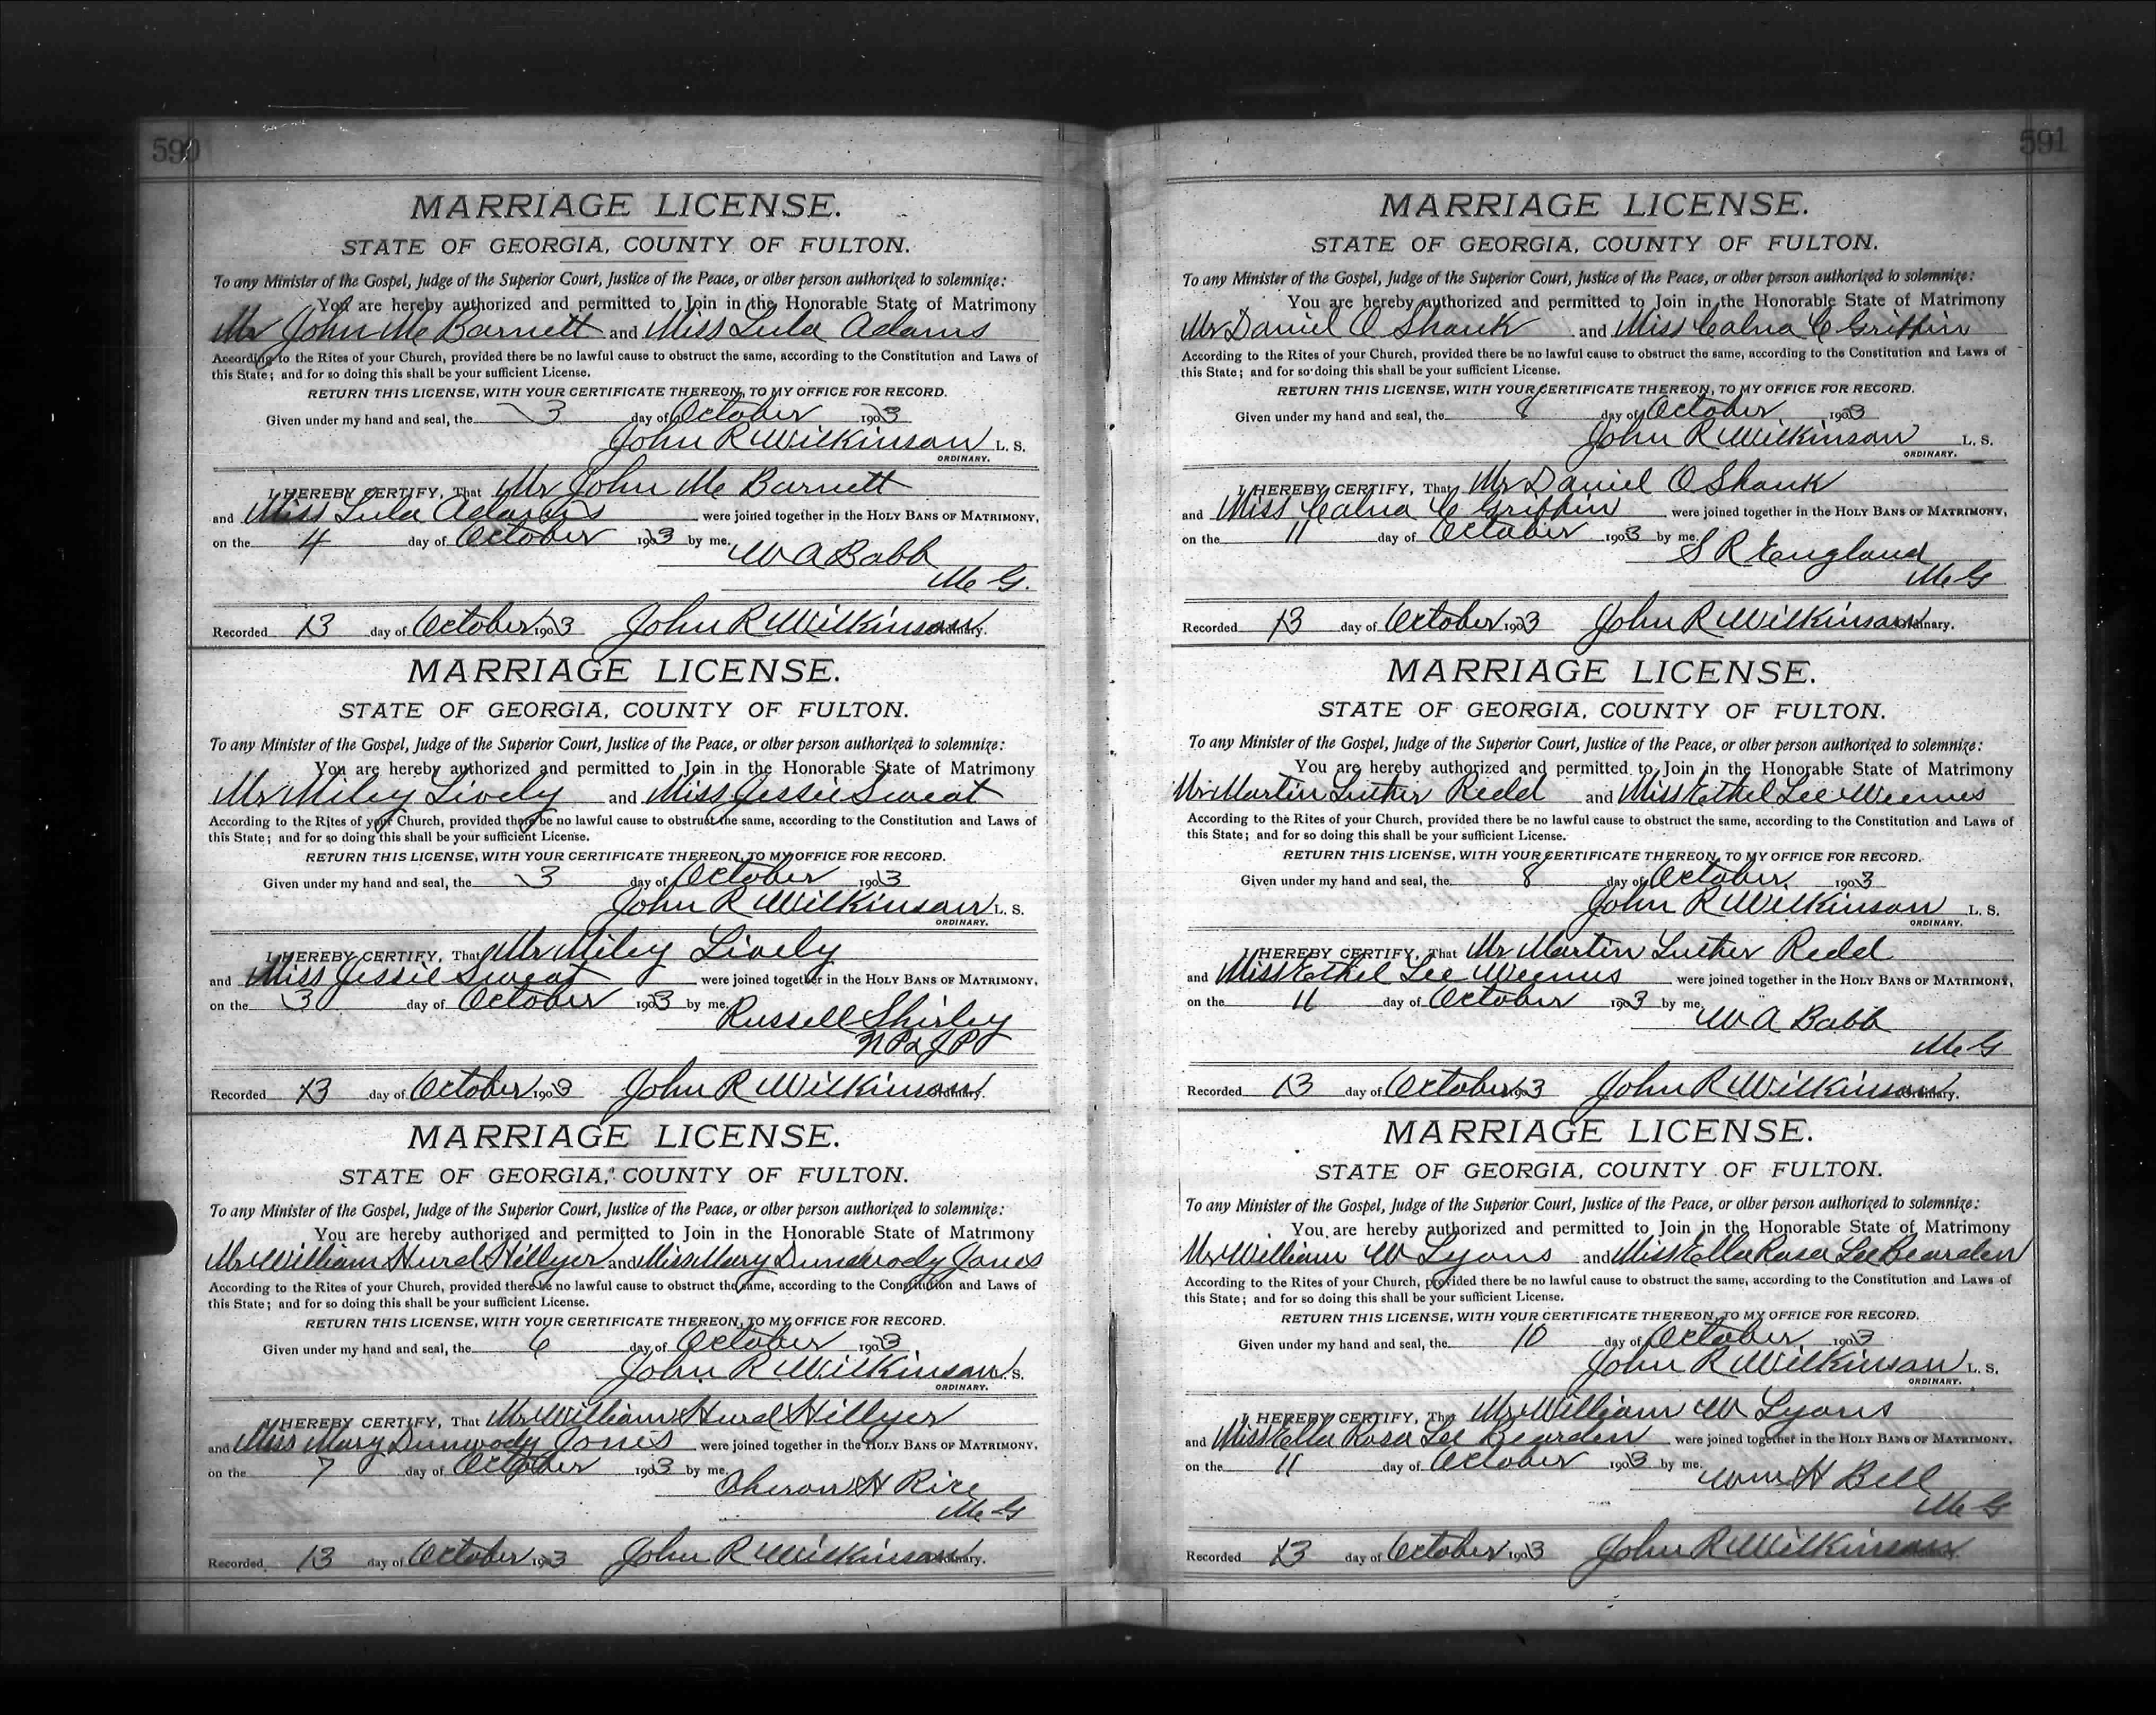 590
MARRIAGE LICENSE.
STATE OF GEORGIA, COUNTY OF FULTON.
To any Minister of the Gospel, Judge of the Superior Court, Justice of the Peace, or other person authorized to solemnize:
You are hereby authorized and permitted to Join in the Honorable State of Matrimony
Mr John M Barnett and Miss Lula Adams
According to the Rites of your Church, provided there be no lawful cause to obstruct the same, according to the Constitution and Laws of
this State; and for so doing this shall be your sufficient License.
RETURN THIS LICENSE, WITH YOUR CERTIFICATE THEREON, TO MY OFFICE FOR RECORD.
Given under my hand and seal, the 3 day of October 1903
John R Wilkinson L. S.
ORDINARY.
I HEREBY CERTIFY, That Mr John M Barnett
and Miss Lula Adams were joined together in the HOLY BANS OF MATRIMONY,
on the 4 day of October 1903 by me.
W A Babb
M G.
Recorded 13 day of October 1903 John R Wilkinson Ordinary.
MARRIAGE LICENSE.
STATE OF GEORGIA, COUNTY OF FULTON.
To any Minister of the Gospel, Judge of the Superior Court, Justice of the Peace, or other person authorized to solemnize:
You are hereby authorized and permitted to Join in the Honorable State of Matrimony
Mr Miley Lively and Miss Jessie Sweat
According to the Rites of your Church, provided there be no lawful cause to obstruct the same, according to the Constitution and Laws of
this State; and for so doing this shall be your sufficient License.
RETURN THIS LICENSE, WITH YOUR CERTIFICATE THEREON, TO MY OFFICE FOR RECORD.
Given under my hand and seal, the 3 day of October 1903
John R Wilkinson L. S.
ORDINARY.
I HEREBY CERTIFY, That Mr Miley Lively
and Miss Jessie Sweat were joined together in the HOLY BANS OF MATRIMONY,
on the 3 day of October 1903 by me.
Russell Shirley
N P & J P
Recorded 13 day of October 1903 John R Wilkinson Ordinary.
MARRIAGE LICENSE.
STATE OF GEORGIA, COUNTY OF FULTON.
To any Minister of the Gospel, Judge of the Superior Court, Justice of the Peace, or other person authorized to solemnize:
You are hereby authorized and permitted to Join in the Honorable State of Matrimony
Mr William Hurd Hillyer and Miss Mary Dunwody Jones
According to the Rites of your Church, provided there be no lawful cause to obstruct the same, according to the Constitution and Laws of
this State; and for so doing this shall be your sufficient License.
RETURN THIS LICENSE, WITH YOUR CERTIFICATE THEREON, TO MY OFFICE FOR RECORD.
Given under my hand and seal, the 6 day of October 1903
John R Wilkinson L. S.
ORDINARY.
I HEREBY CERTIFY, That Mr William Hurd Hillyer
and Miss Mary Dunwody Jones were joined together in the HOLY BANS OF MATRIMONY,
on the 7 day of October 1903 by me.
Theron H Rice
M G
Recorded 13 day of October 1903 John R Wilkinson Ordinary.
591
MARRIAGE LICENSE.
STATE OF GEORGIA, COUNTY OF FULTON.
To any Minister of the Gospel, Judge of the Superior Court, Justice of the Peace, or other person authorized to solemnize:
You are hereby authorized and permitted to Join in the Honorable State of Matrimony
Mr Daniel O Shank and Miss C Griffin
According to the Rites of your Church, provided there be no lawful cause to obstruct the same, according to the Constitution and Laws of
this State; and for so doing this shall be your sufficient License.
RETURN THIS LICENSE, WITH YOUR CERTIFICATE THEREON, TO MY OFFICE FOR RECORD.
Given under my hand and seal, the 8 day of October 1903
John R Wilkinson L. S.
ORDINARY.
I HEREBY CERTIFY, That Mr Daniel O Shank
and Miss C Griffin were joined together in the HOLY BANS OF MATRIMONY,
on the 11 day of October 1903 by me.
S R England
M G
Recorded 13 day of October 1903 John R Wilkinson Ordinary.
MARRIAGE LICENSE.
STATE OF GEORGIA, COUNTY OF FULTON.
To any Minister of the Gospel, Judge of the Superior Court, Justice of the Peace, or other person authorized to solemnize:
You are hereby authorized and permitted to Join in the Honorable State of Matrimony
Mr Martin Luther Redd and Miss Ethel Lee Weemes
According to the Rites of your Church, provided there be no lawful cause to obstruct the same, according to the Constitution and Laws of
this State; and for so doing this shall be your sufficient License.
RETURN THIS LICENSE, WITH YOUR CERTIFICATE THEREON, TO MY OFFICE FOR RECORD.
Given under my hand and seal, the 8 day of October 1903
John R Wilkinson L. S.
ORDINARY.
I HEREBY CERTIFY, That Mr Martin Luther Redd
and Miss Ethel Lee Weemes were joined together in the HOLY BANS OF MATRIMONY,
on the 11 day of October 1903 by me.
W A Babb
M G
Recorded 13 day of October 1903 John R Wilkinson Ordinary.
MARRIAGE LICENSE.
STATE OF GEORGIA, COUNTY OF FULTON.
To any Minister of the Gospel, Judge of the Superior Court, Justice of the Peace, or other person authorized to solemnize:
You are hereby authorized and permitted to Join in the Honorable State of Matrimony
Mr William W Lyons and Miss Ella Rosa Lee Bearden
According to the Rites of your Church, provided there be no lawful cause to obstruct the same, according to the Constitution and Laws of
this State; and for so doing this shall be your sufficient License.
RETURN THIS LICENSE, WITH YOUR CERTIFICATE THEREON, TO MY OFFICE FOR RECORD.
Given under my hand and seal, the 10 day of October 1903
John R Wilkinson L. S.
ORDINARY.
I HEREBY CERTIFY, That Mr William W Lyons
and Miss Ella Rosa Lee Bearden were joined together in the HOLY BANS OF MATRIMONY,
on the 11 day of October 1903 by me.
Wm H Bell
M G
Recorded 13 day of October 1903 John R Wilkinson